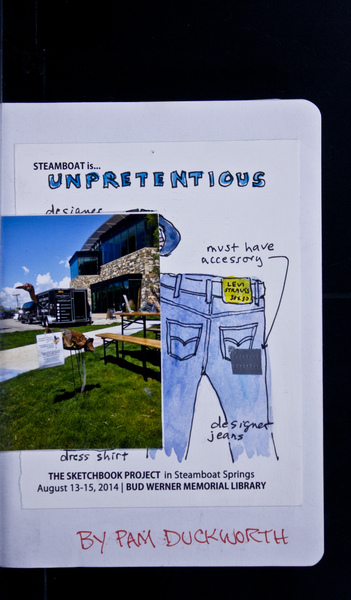 STEAMBOAT is...
UNPRETENTIOUS
designer
must have
accessory
LEVI
STRAUSS
designer
jeans
dress shirt
THE SKETCHBOOK PROJECT in Steamboat Springs
August 13-15, 2014 | BUD WERNER MEMORIAL LIBRARY
BY PAM DUCKWORTH